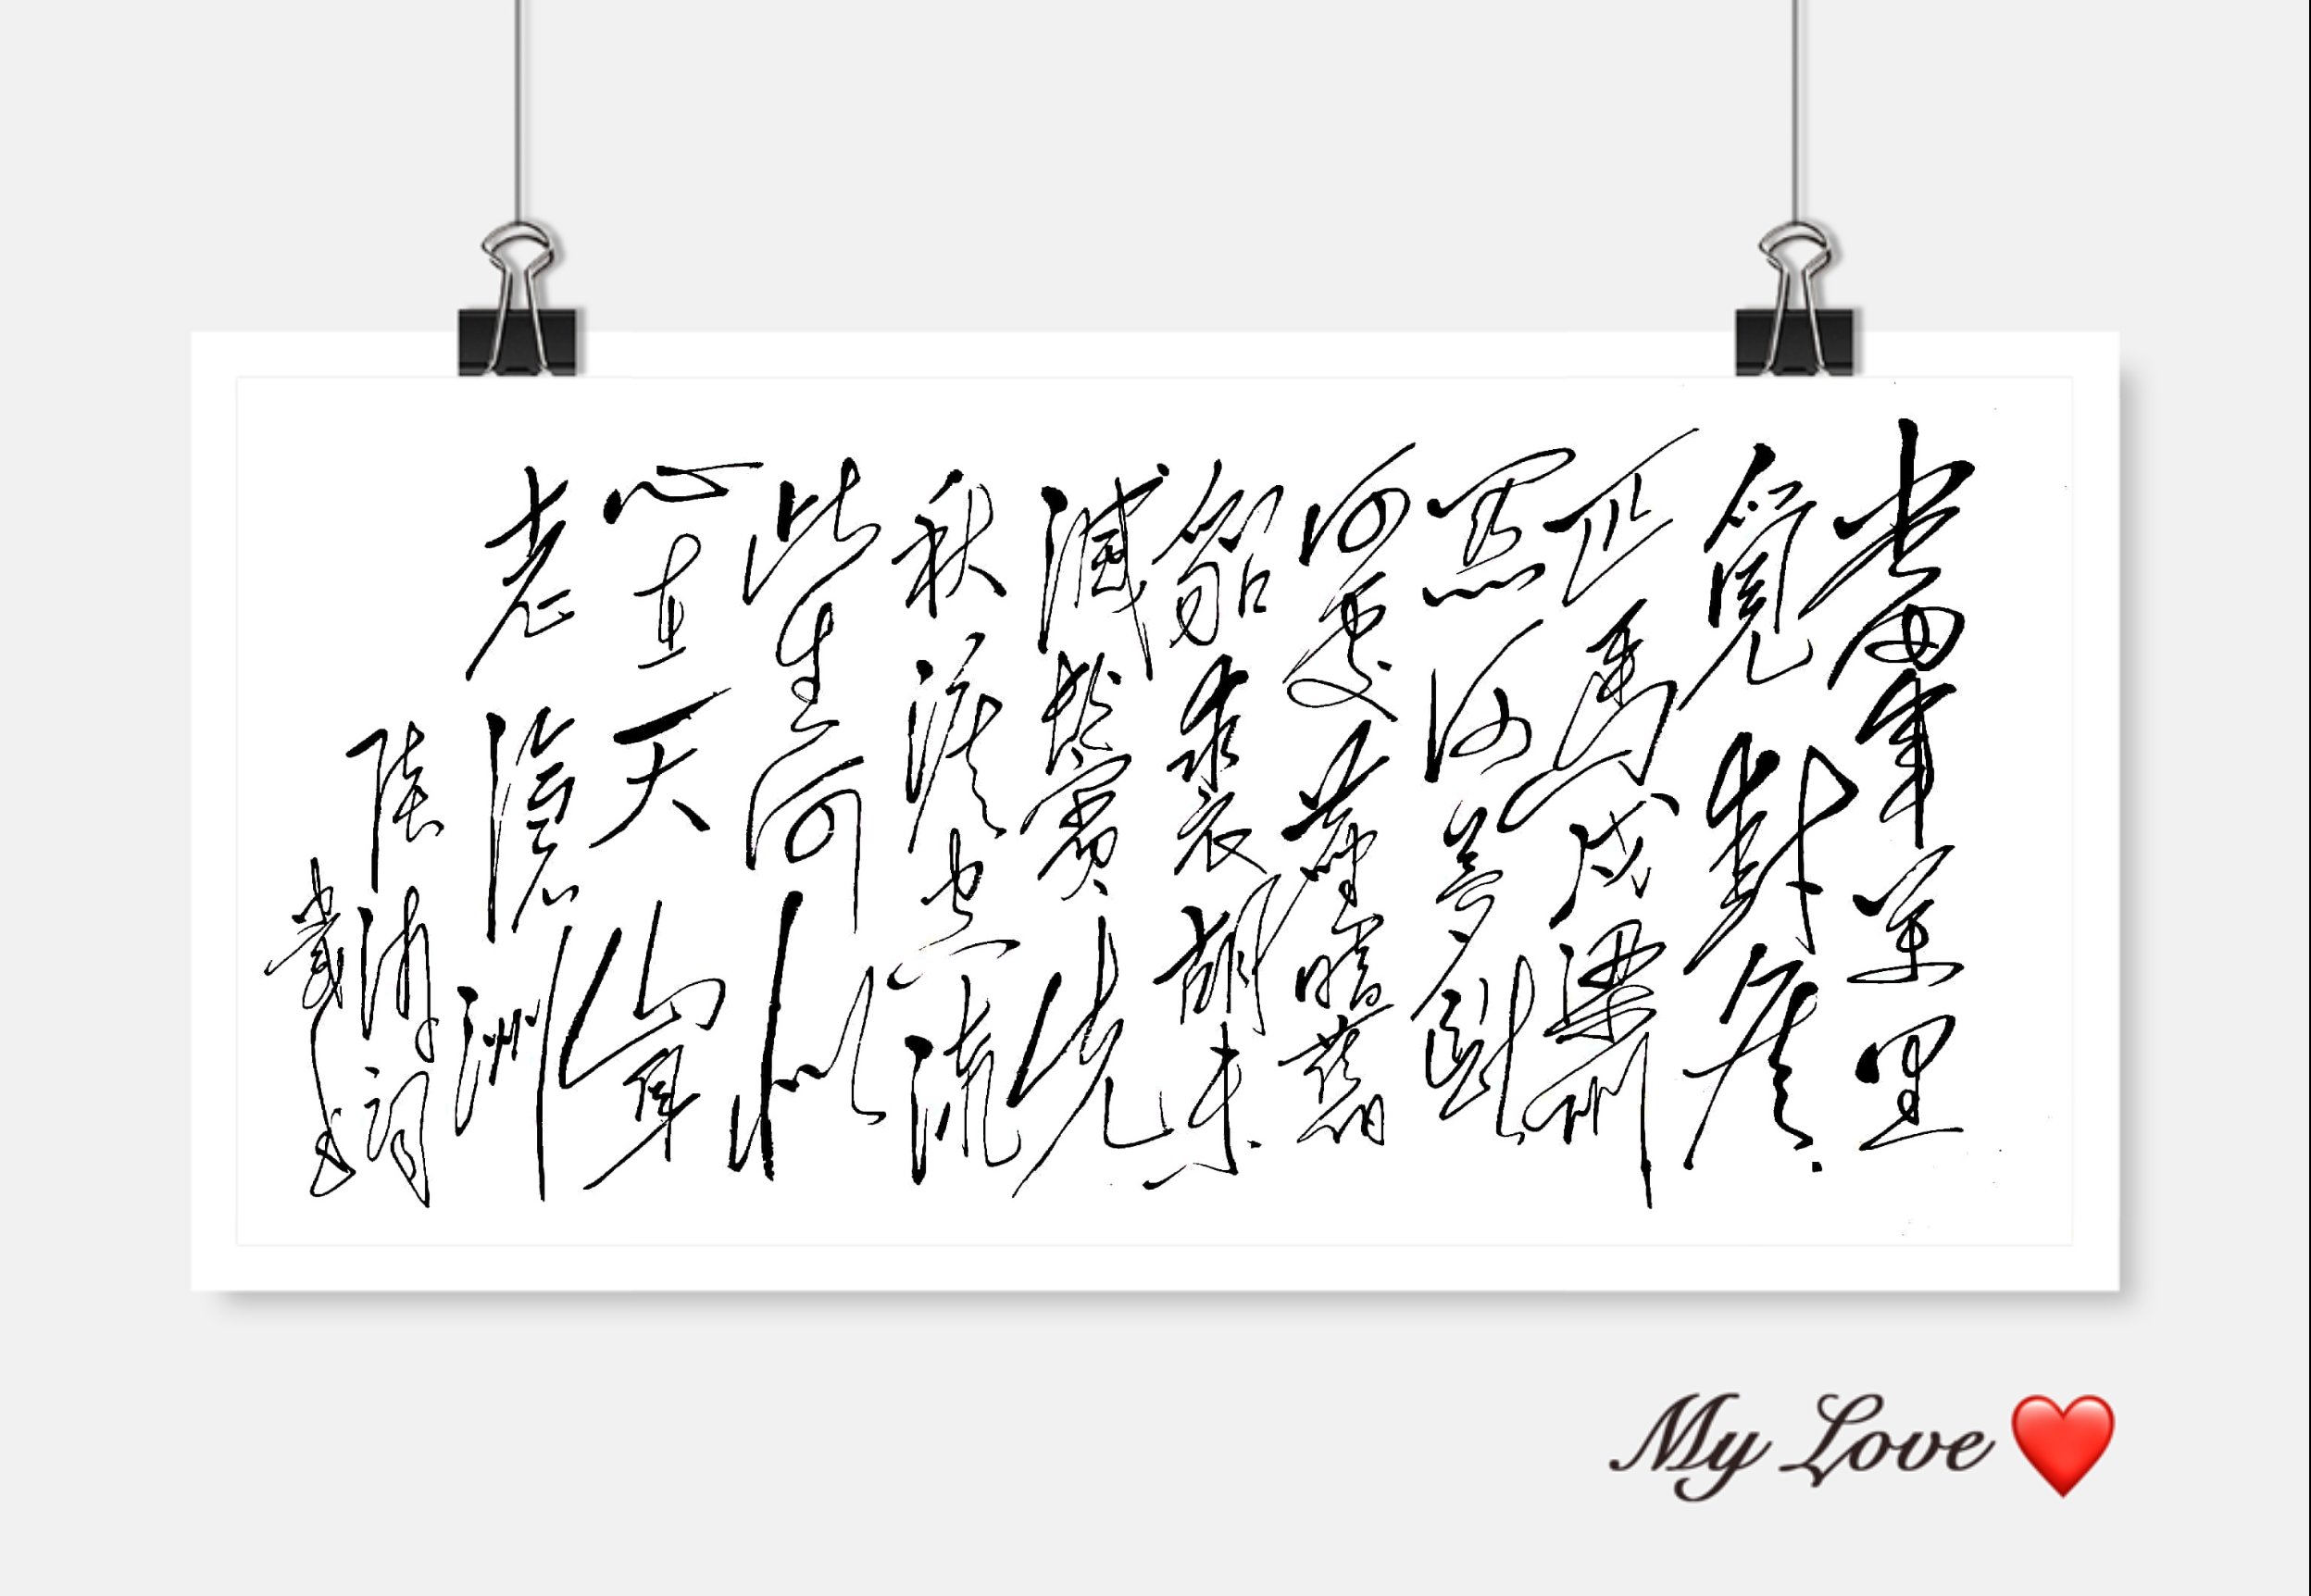 當年萬里
覓封侯
匹馬戍梁州
關河夢斷
何處塵暗舊
貂裘胡未
滅鬢先
秋淚空流
此生何似
心在天山身
老滄洲
陸游詞
My Love ❤️